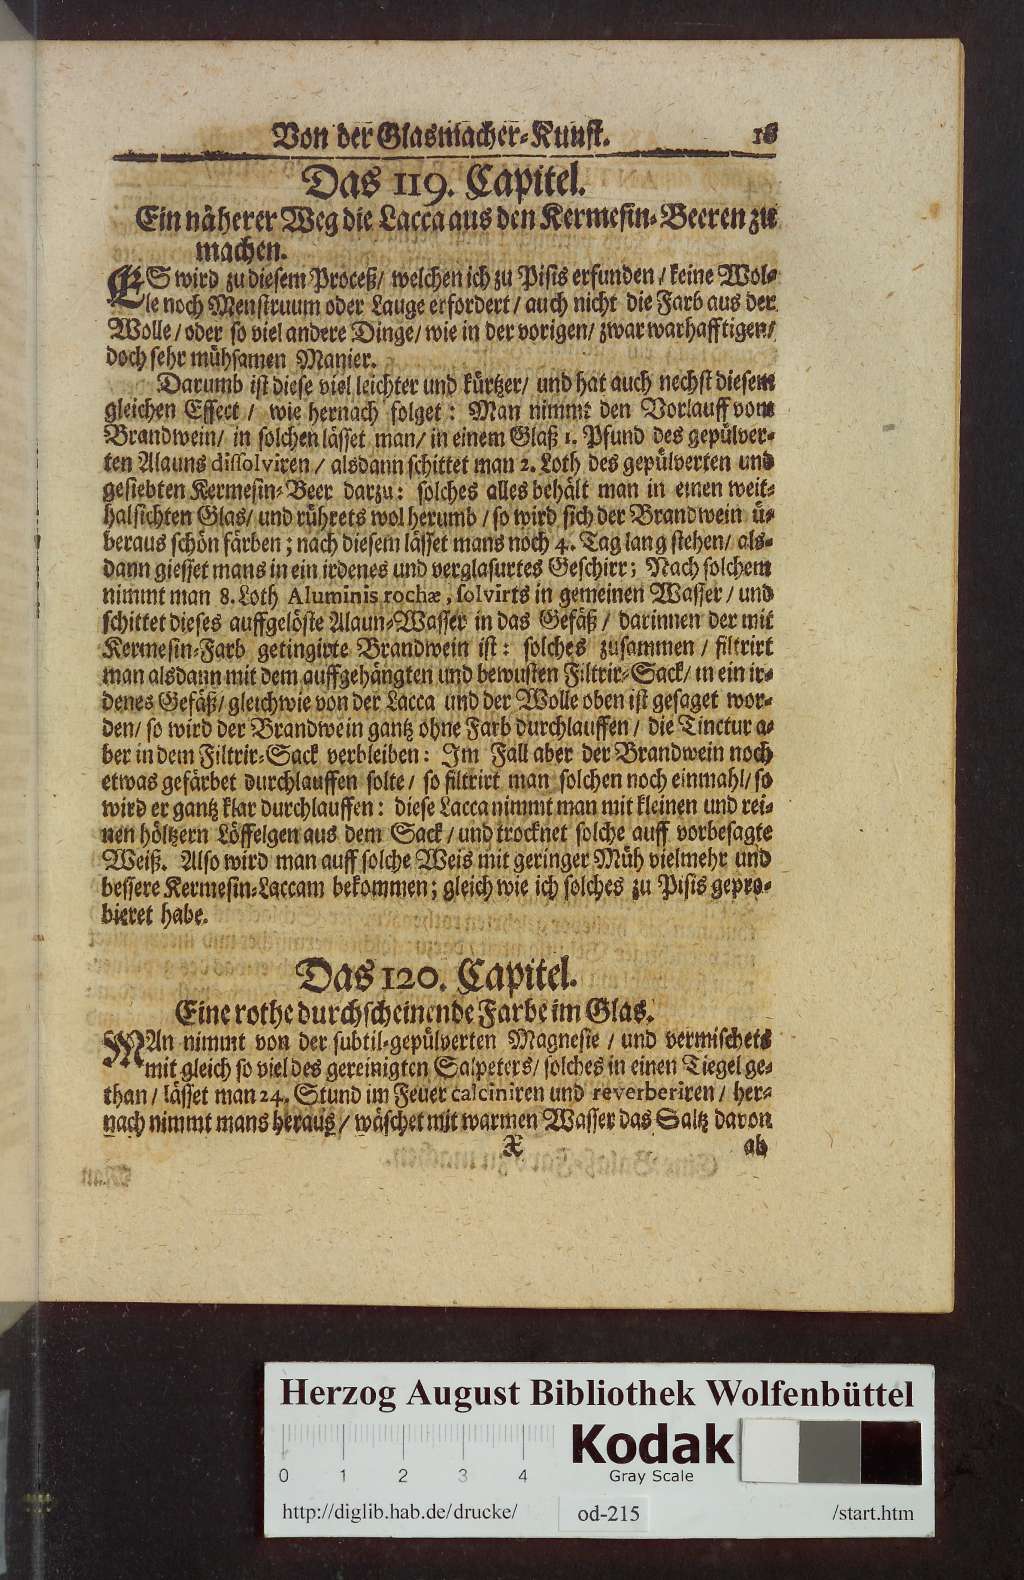 Von der Glasmacher-Kunst. 16
Das 119. Capitel.
Ein näherer Weg die Lacca aus den Kermesin-Beeren zu
machen.
ES wird zu diesem Proceß/ welchen ich zu Pisis erfunden/ keine Wol-
le noch Menstruum oder Lauge erfordert/ auch nicht die Farb aus der
Wolle/ oder so viel andere Dinge/ wie in der vorigen/ zwar warhafftigen/
doch sehr mühsamen Manier.
Darumb ist diese viel leichter und kürtzer/ und hat auch nechst diesem
gleichen Effect/ wie hernach folget: Man nimmt den Vorlauff vom
Brandwein/ in solchen lässet man/ in einem Glaß 1. Pfund des gepülver-
ten Alauns dissolviren/ alsdann schittet man 2. Loth des gepülverten und
gesiebten Kermesin-Beer darzu: solches alles behält man in einen weit-
halsichten Glas/ und rührets wol herumb/ so wird sich der Brandwein ü-
beraus schön färben; nach diesem lässet mans noch 4. Tag lang stehen/ als-
dann giesset mans in ein irdenes und verglasurtes Geschirr; Nach solchem
nimmt man 8. Loth Aluminis rochæ, solvirts in gemeinen Wasser/ und
schittet dieses auffgelöste Alaun-Wasser in das Gefäß/ darinnen der mit
Kermesin-Farb getingirte Brandwein ist: solches zusammen/ filtrirt
man alsdann mit dem auffgehängten und bewusten Filtrir-Sack/ in ein ir-
denes Gefäß/ gleichwie von der Lacca und der Wolle oben ist gesaget wor-
den/ so wird der Brandwein gantz ohne Farb durchlauffen/ die Tinctur a-
ber in dem Filtrir-Sack verbleiben: Im Fall aber der Brandwein noch
etwas gefärbet durchlauffen solte/ so filtrirt man solchen noch einmahl/ so
wird er gantz klar durchlauffen: diese Lacca nimmt man mit kleinen und rei-
nen höltzern Löffelgen aus dem Sack/ und trocknet solche auff vorbesagte
Weiß. Also wird man auff solche Weis mit geringer Müh vielmehr und
bessere Kermesin-Laccam bekommen; gleich wie ich solches zu Pisis gepro-
bieret habe.
Das 120. Capitel.
Eine rothe durchscheinende Farbe im Glas.
MAn nimmt von der subtil-gepülverten Magnesie/ und vermischets
mit gleich so viel des gereinigten Salpeters/ solches in einen Tiegel ge-
than/ lässet man 24. Stund im Feuer calciniren und reverberiren/ her-
nach nimmt mans heraus/ wäschet mit warmen Wasser das Saltz davon
X ab
Herzog August Bibliothek Wolfenbüttel
0 1 2 3 4
Kodak
Gray Scale
http://diglib.hab.de/drucke/ od-215 /start.htm